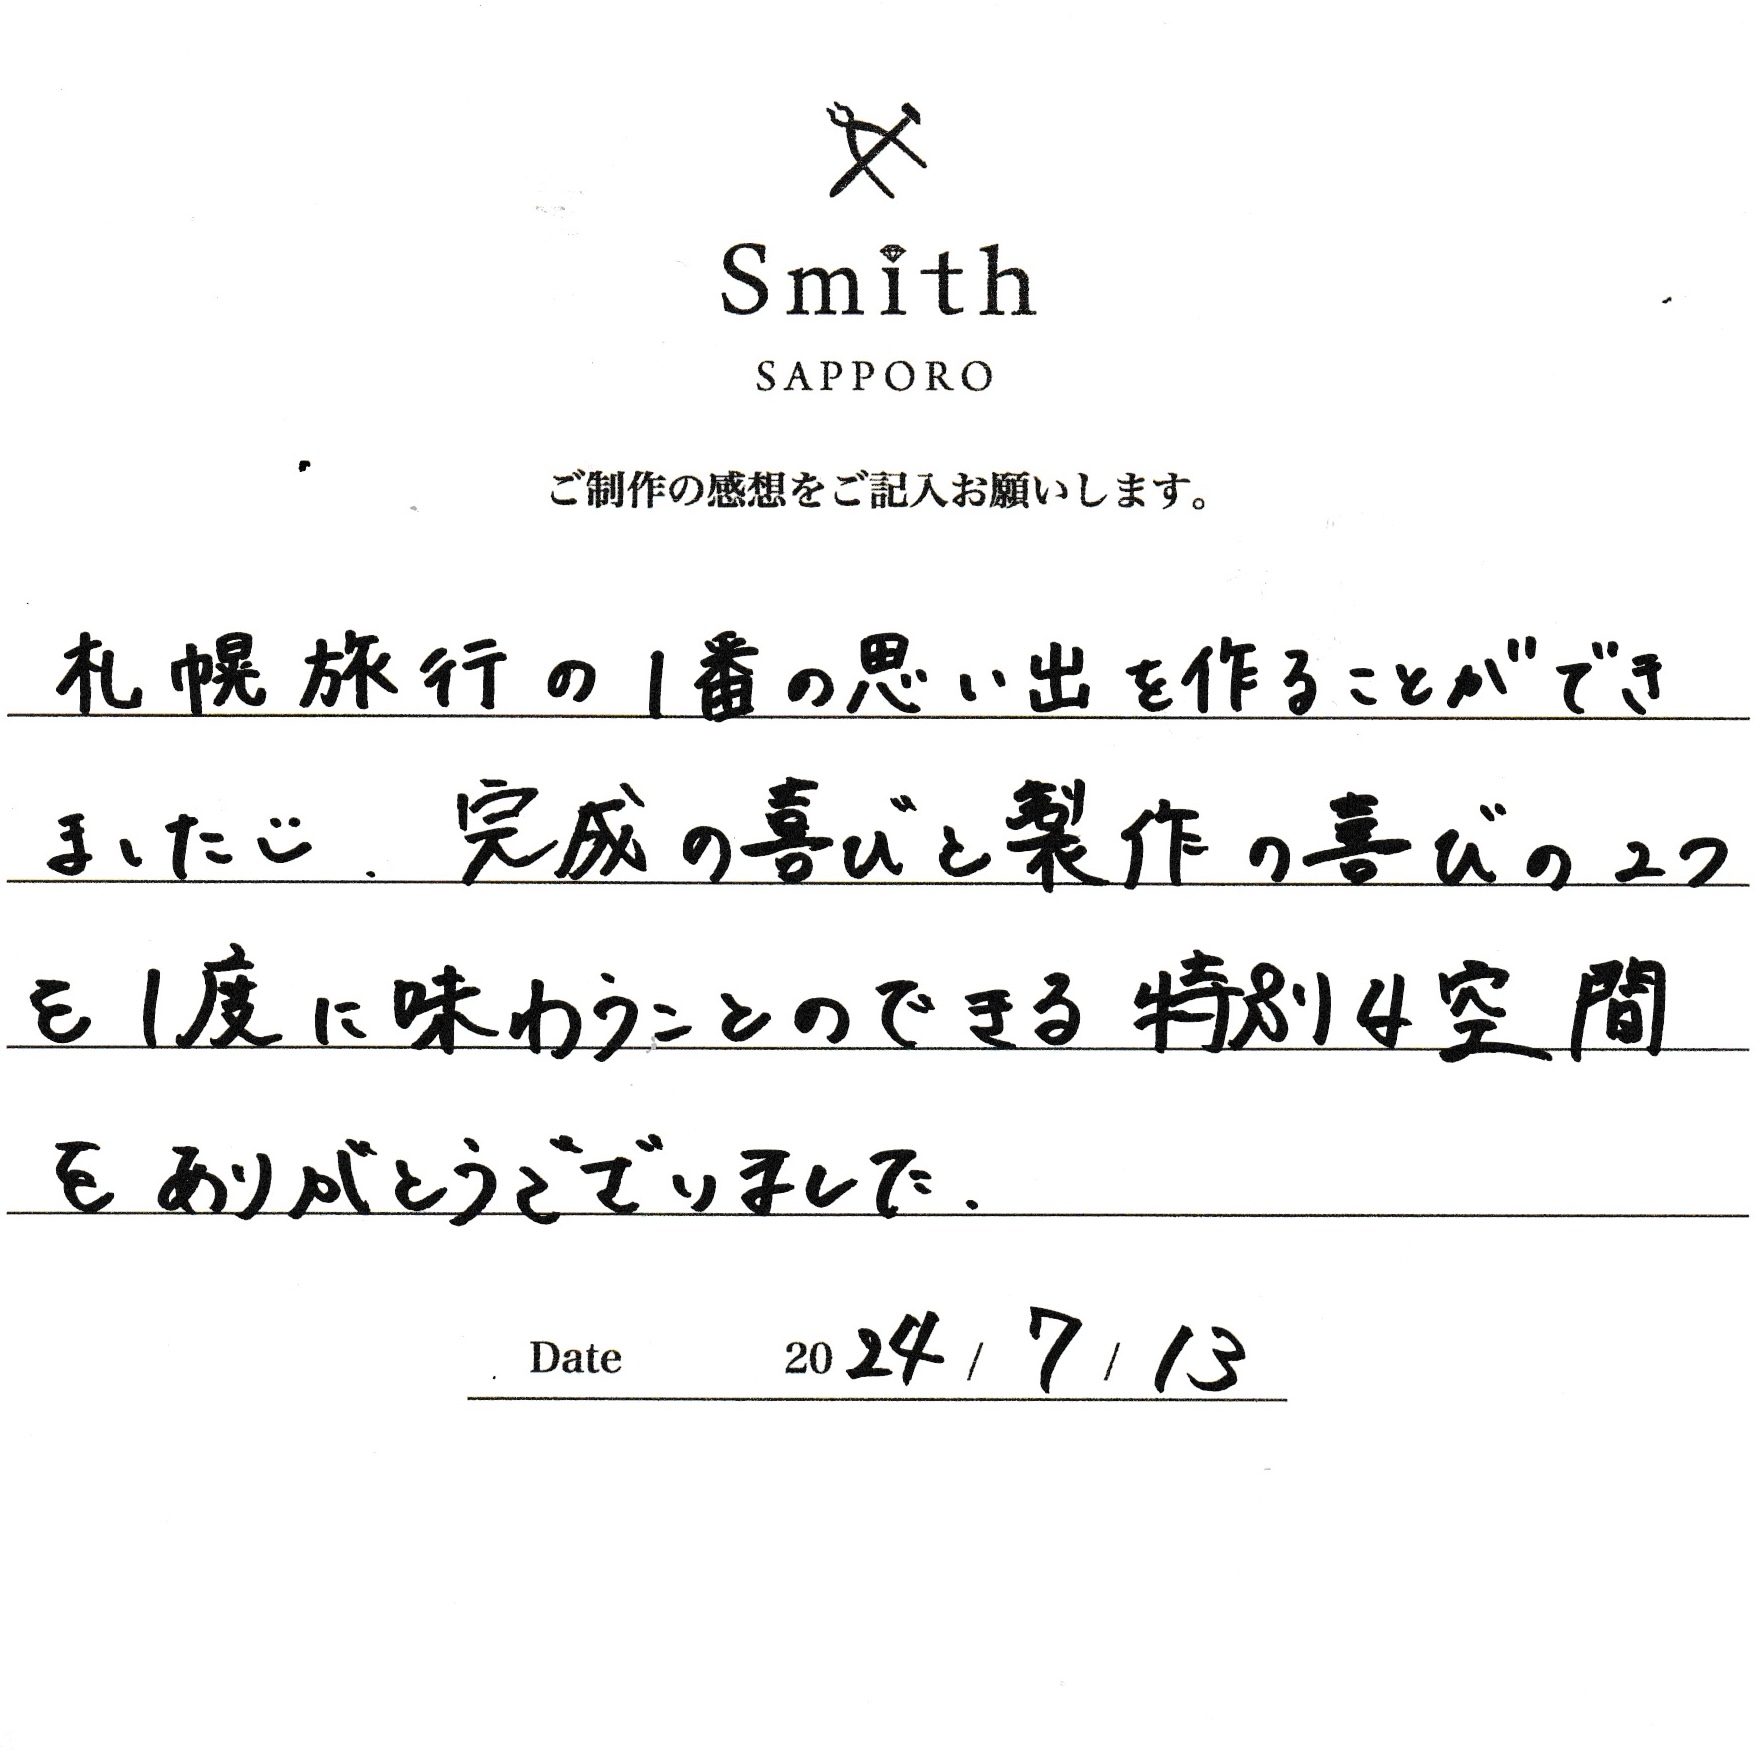 Smith
SAPPORO
ご制作の感想をご記入お願いします。
札幌旅行の1番の思い出を作ることができ
ました. 完成の喜びと製作の喜びの2つ
を1度に味わうことのできる特別な空間
をありがとうございました.
Date 2024/7/13